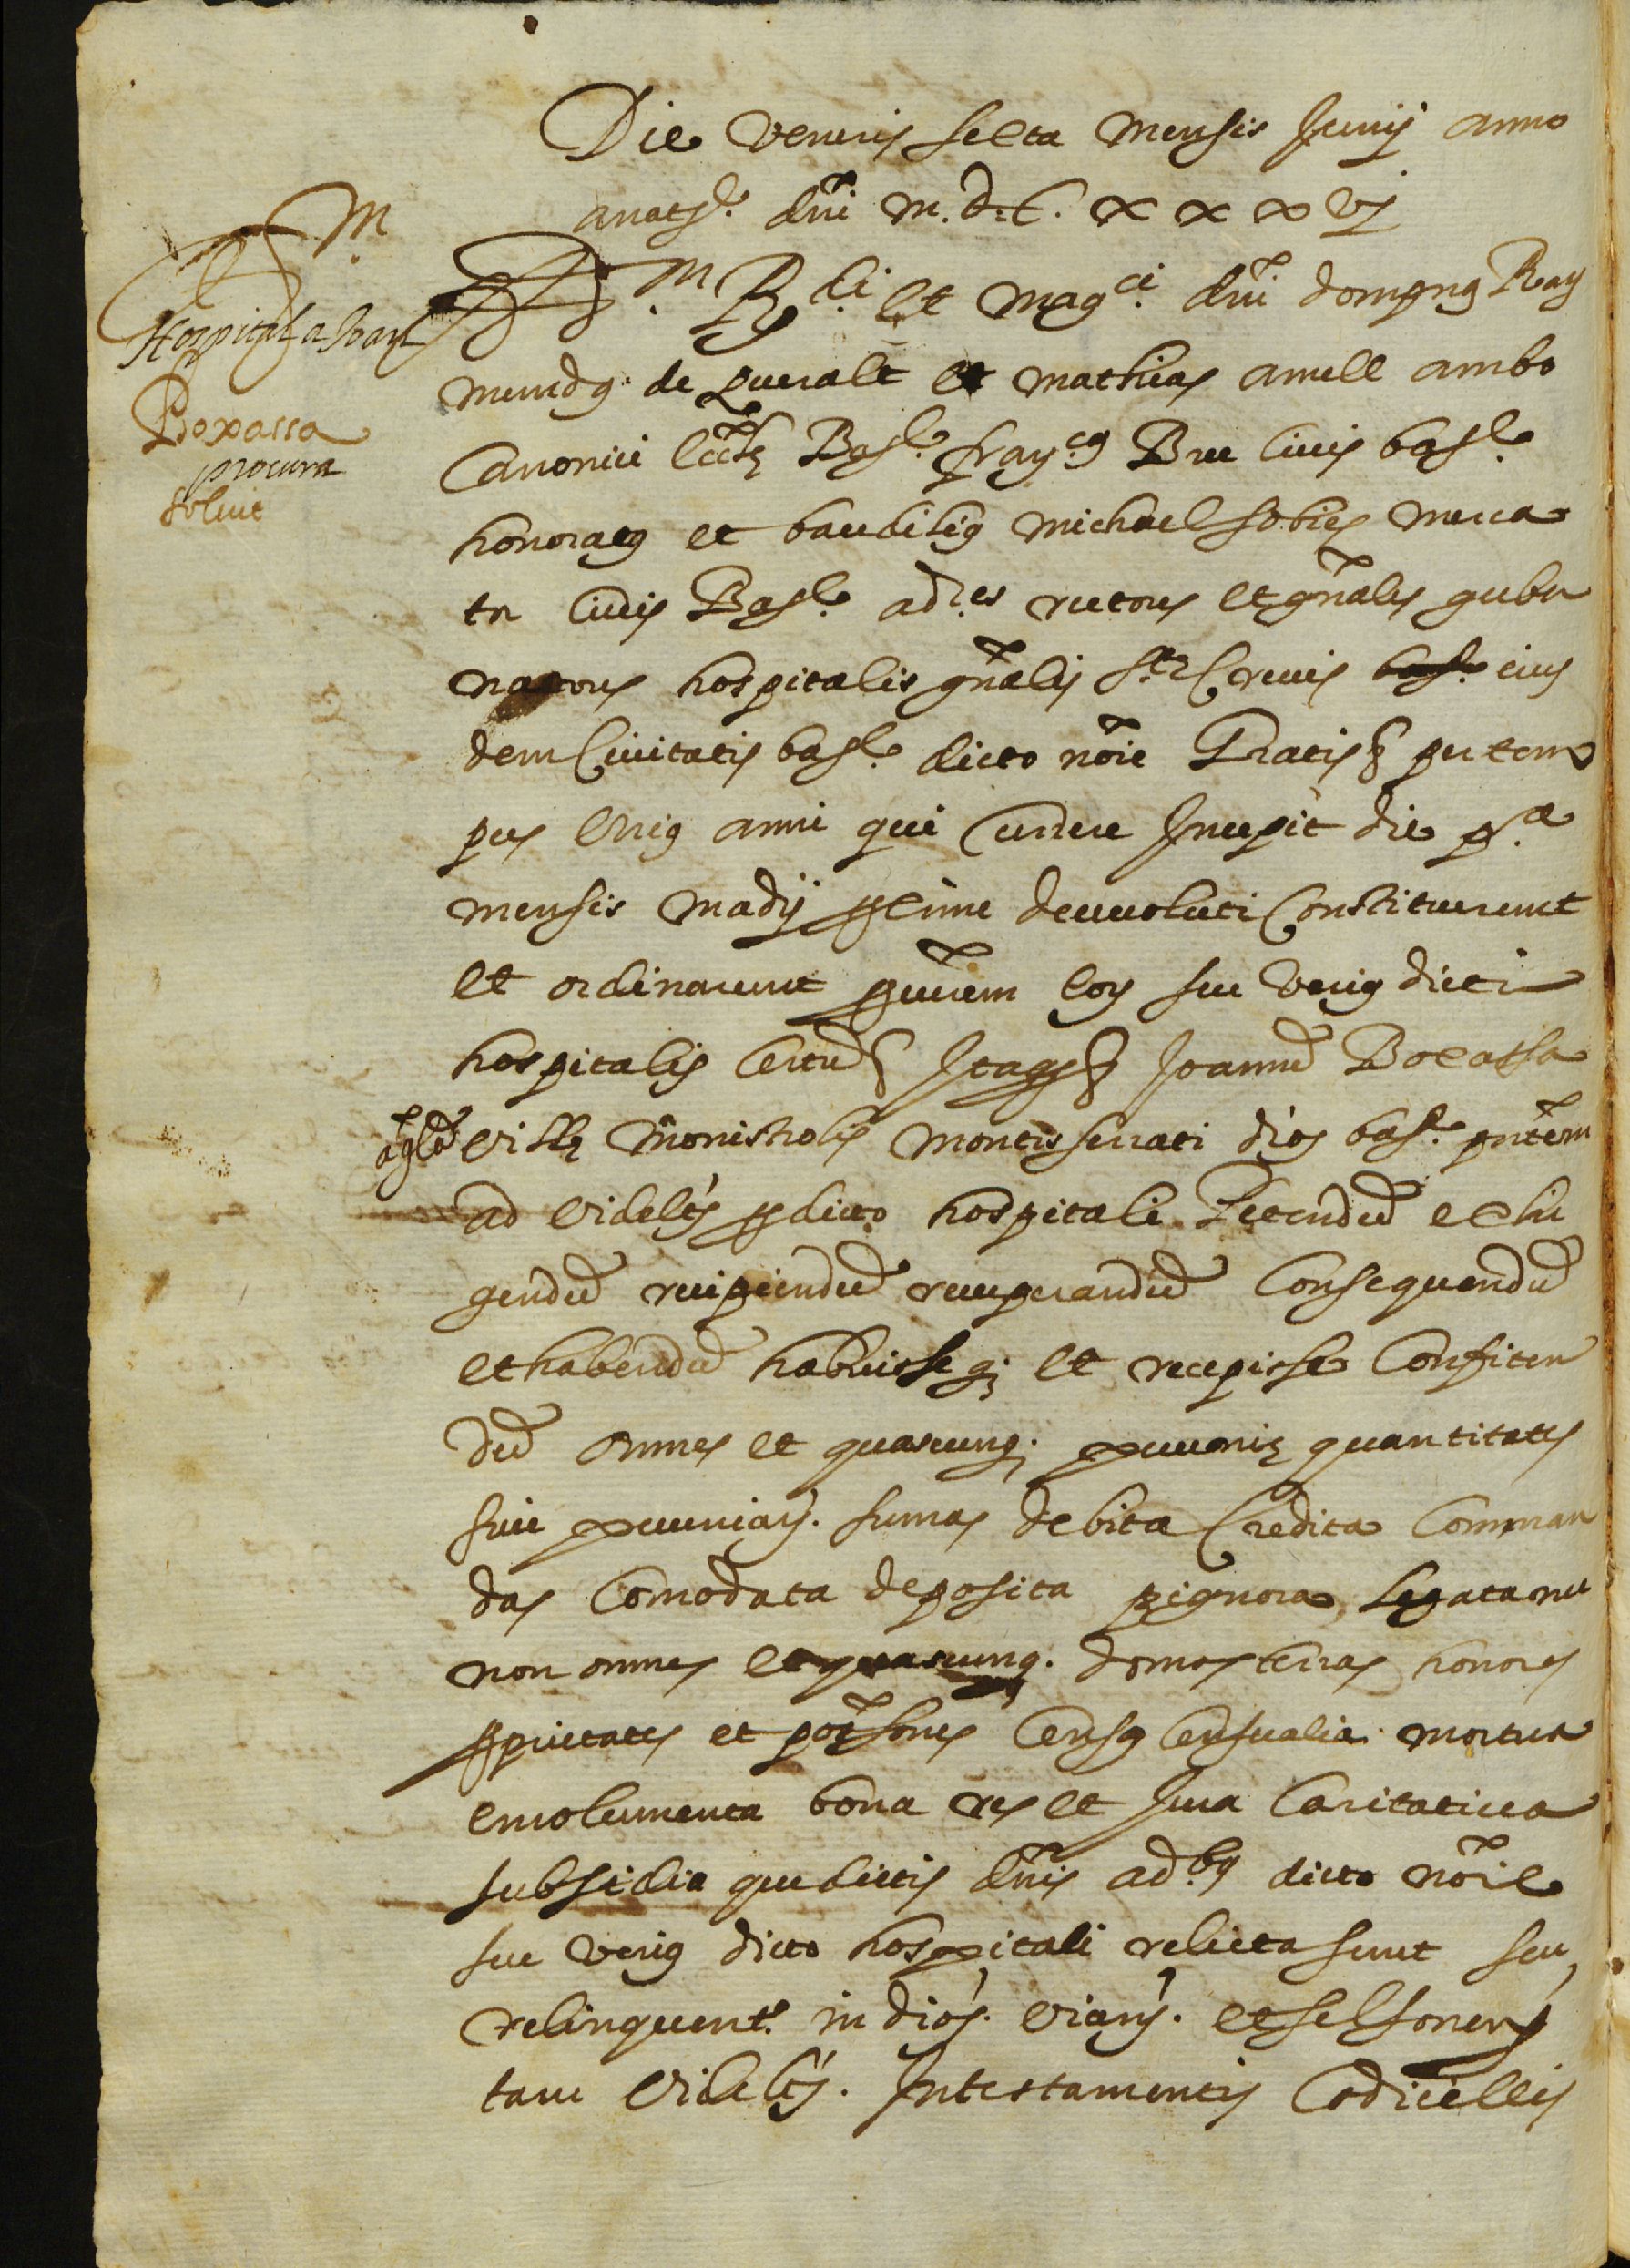 Die veneris sexta mensis Junij anno
a natte. dñi M. d. C. x x x vj
M
Hospital a Joan
Boxassa
procura
soluit
M. Rdi. et magci. dñi dompnus Ray
mundus de Queralt et mathias amell ambo
Canonici Barne. francus Bru Ciuis barne.
honoratus et baudilius michael sobies merca
tor Ciuis Barne. adres rectores et gñales guber
natores hospitalis gñalis ste Crucis eius
dem Ciuitatis barne. dicto nõie Gratis & per tem
pus vnius anni qui Currere Incepit die pa.
mensis madij proxime deuoluti Constituerunt
et ordinarunt procurem eorum seu verius dicti
hospitalis Certum & Itaqz & Joannem Boxassa
ville monistrolis montisserrati dios barne. pñtem
ad videlt pro dicto hospitali Petendum exhi
gendum recipiendum recuperandum Consequendum
et habendum habuisseqz et recepisse Confiten
dum omnes et quascunqz pecunie quantitates
siue pecuniarum. sumas debita Credita Comman
das Comodata deposita pignora, legata nec
non omnes et quascunqz domos terras honores
proprietates et possones Census Censualia mortua
emolumenta bona res et Jura Caritatiua
subsidia que dictis dñis adbus dicto nõie
seu verius dicto hospitali relicta sunt seu
relinquent. in dios. vicarij. et Celsonen
tam videlt. In testamentis Codicillis